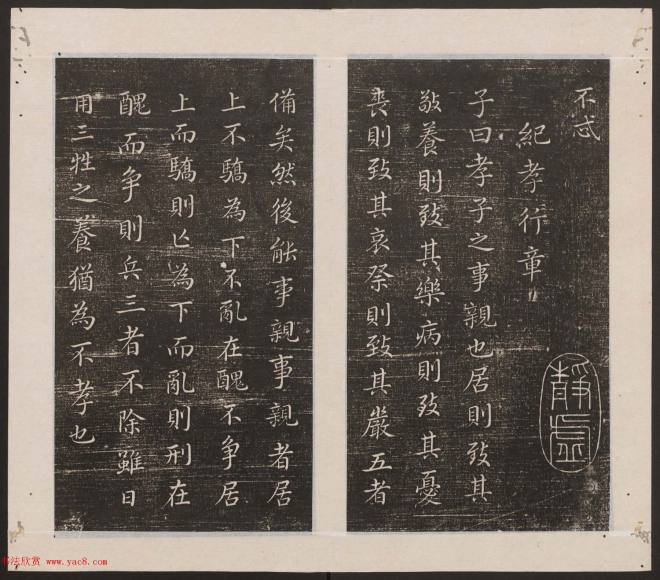 不忒
紀孝行章
子曰孝子之事親也居則致其
敬養則致其樂病則致其憂
喪則致其哀祭則致其嚴五者
備矣然後能事親事親者居
上不驕為下不亂在醜不争居
上而驕則亡為下而亂則刑在
醜而争則兵三者不除雖日
用三牲之養猶為不孝也
靜
书法欣赏 www.yac8.com